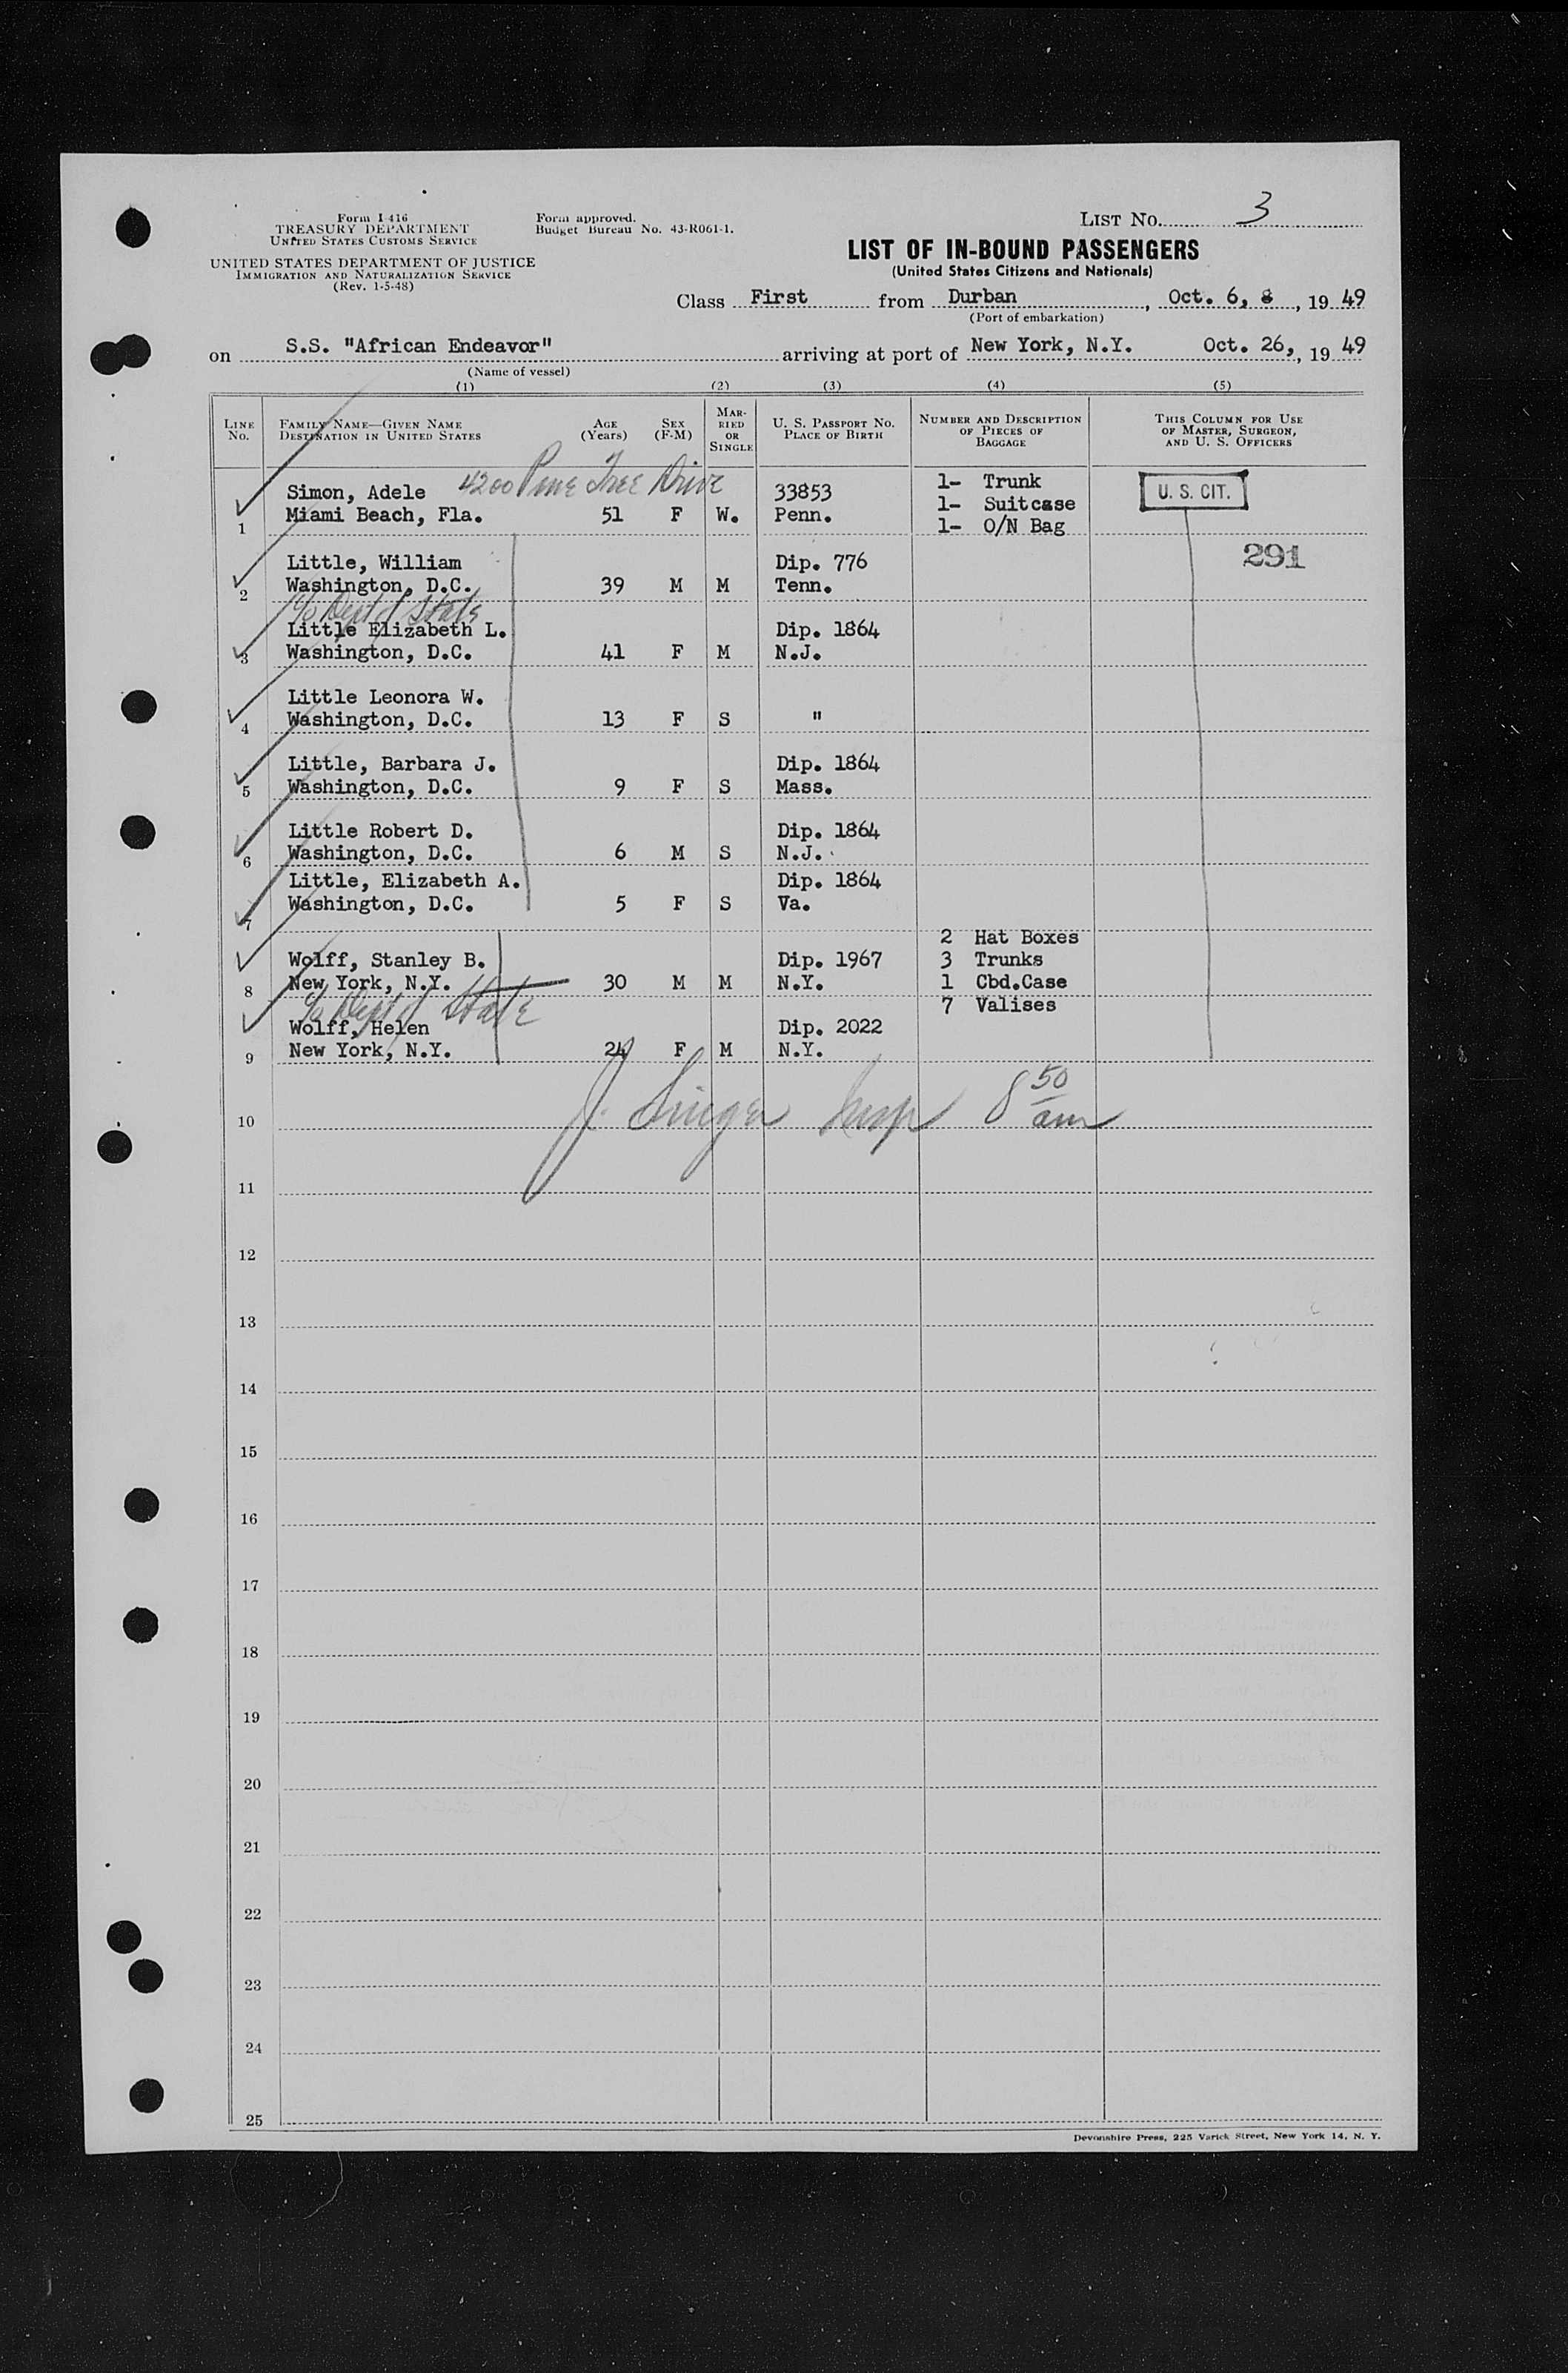 Form I-416
TREASURY DEPARTMENT
UNITED STATES CUSTOMS SERVICE
UNITED STATES DEPARTMENT OF JUSTICE
IMMIGRATION AND NATURALIZATION SERVICE
(Rev. 1-5-48)
Form approved.
Budget Bureau No. 43-R061-1.
LIST No. 3
LIST OF IN-BOUND PASSENGERS
(United States Citizens and Nationals)
Class First from Durban, Oct. 6, 1949
(Port of embarkation)
on S.S. "African Endeavor" arriving at port of New York, N.Y. Oct. 26,, 1949
(Name of vessel)
(1) (2) (3) (4) (5)
LINE No. FAMILY NAME—GIVEN NAME DESTINATION IN UNITED STATES AGE (Years) SEX (F-M) MARRIED OR SINGLE U. S. PASSPORT No. PLACE OF BIRTH NUMBER AND DESCRIPTION OF PIECES OF BAGGAGE THIS COLUMN FOR USE OF MASTER, SURGEON, AND U. S. OFFICERS
Simon, Adele 4200 Pine Tree Drive 33853 1- Trunk U. S. CIT.
1- Suitcase
1 Miami Beach, Fla. 51 F W. Penn. 1- O/N Bag
291
Little, William Dip. 776
2 Washington, D.C. 39 M M Tenn.
c/o Dept of State
Little Elizabeth L. Dip. 1864
3 Washington, D.C. 41 F M N.J.
Little Leonora W.
4 Washington, D.C. 13 F S "
Little, Barbara J. Dip. 1864
5 Washington, D.C. 9 F S Mass.
Little Robert D. Dip. 1864
6 Washington, D.C. 6 M S N.J.
Little, Elizabeth A. Dip. 1864
7 Washington, D.C. 5 F S Va.
2 Hat Boxes
Wolff, Stanley B. Dip. 1967 3 Trunks
8 New York, N.Y. 30 M M N.Y. 1 Cbd.Case
c/o Dept of State 7 Valises
Wolff, Helen Dip. 2022
9 New York, N.Y. 24 F M N.Y.
10 J. Singer Insp 8 50 am
11
12
13
14
15
16
17
18
19
20
21
22
23
24
25
Devonshire Press, 225 Varick Street, New York 14, N. Y.